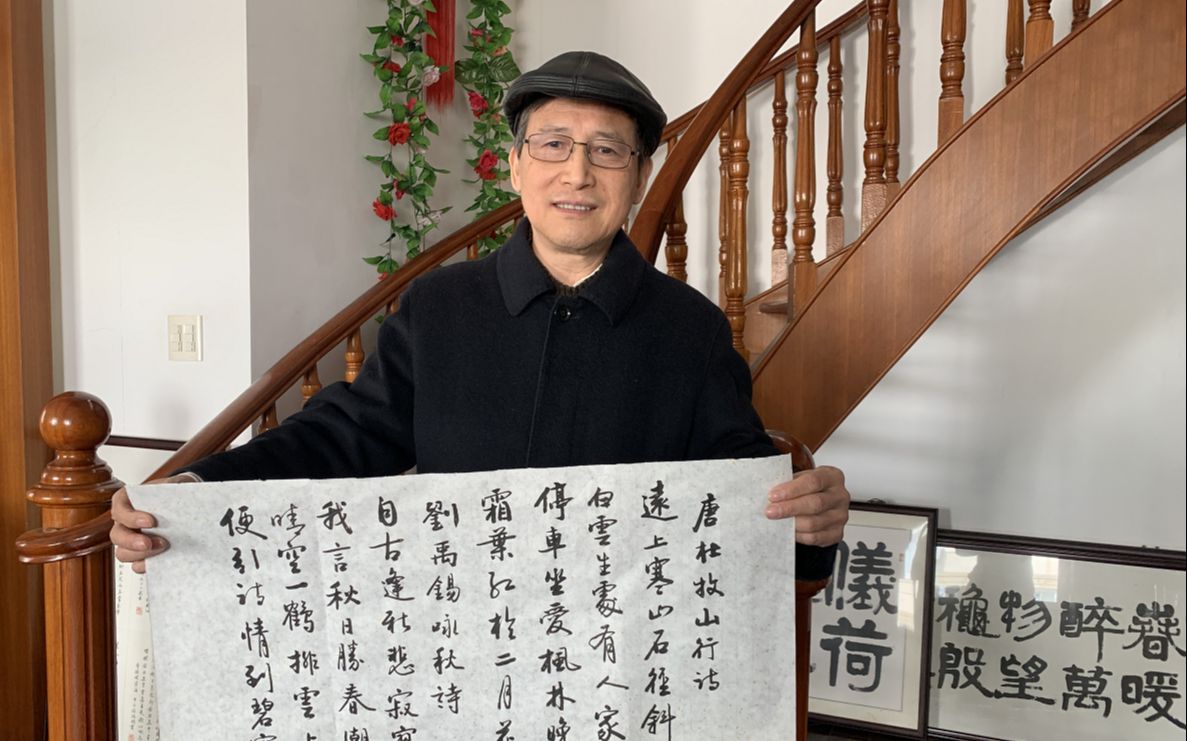 唐杜牧山行诗
遠上寒山石徑斜
白雲生處有人家
停車坐愛楓林晚
霜葉紅於二月花
劉禹錫咏秋詩
自古逢秋悲寂寥
我言秋日勝春潮
晴空一鶴排雲上
便引诗情到碧霄
春暖
醉萬
物望
穐殷
儀
荷